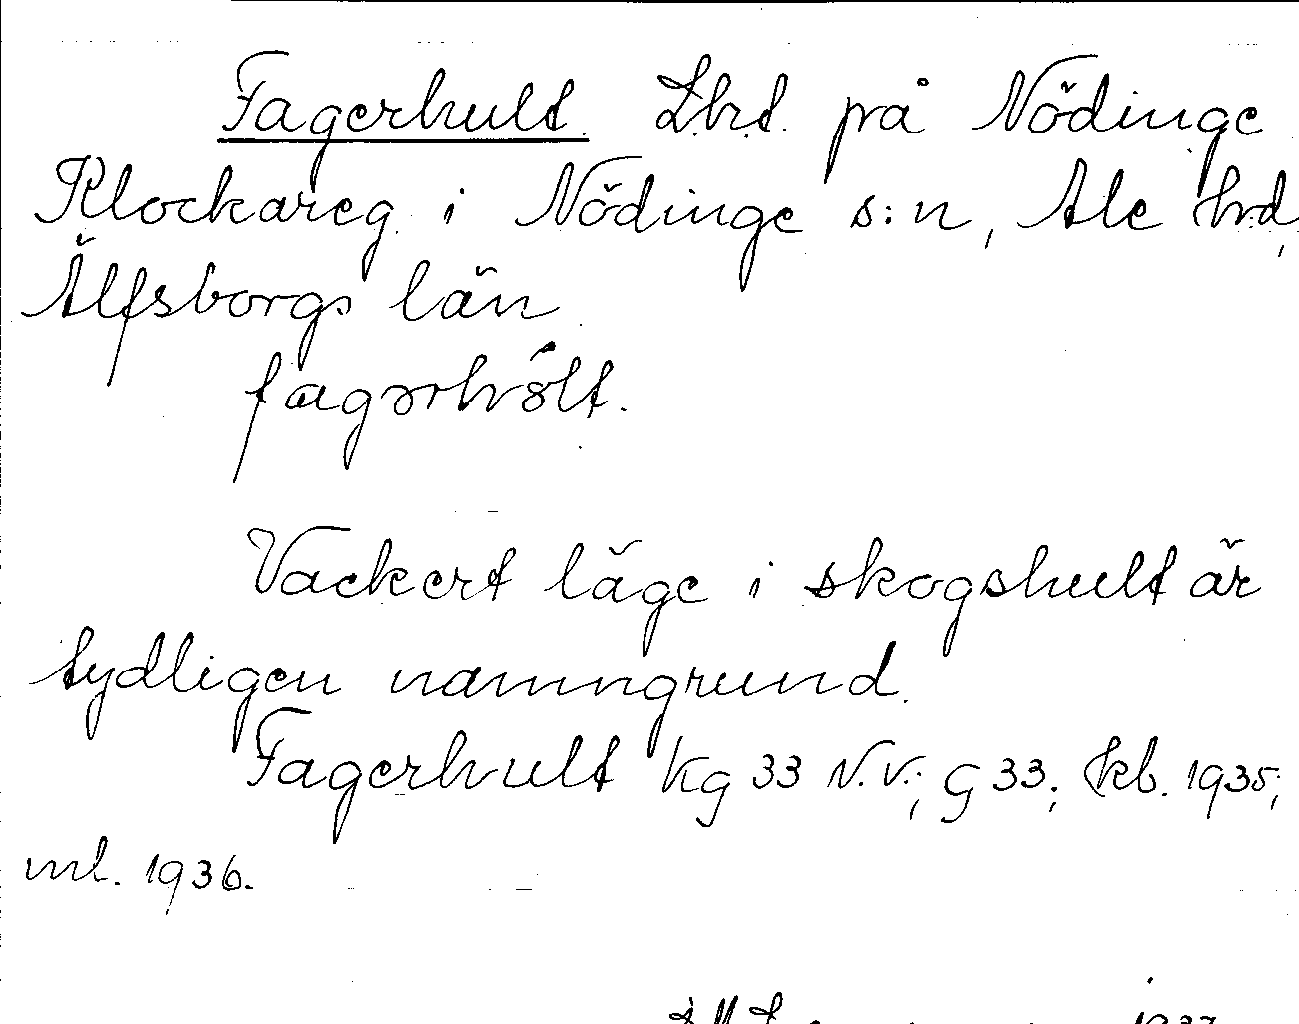 Fagerhult. Lht. på Nödinge
Klockareg. i Nödinge s:n, Ale hrd,
Älfsborgs län.
fagərhʌ́lt.
Vackert läge i skogshult är
tydligen namngrund.
Fagerhult Kg 33 N.V.; G 33; kb. 1935;
ml. 1936.
1937